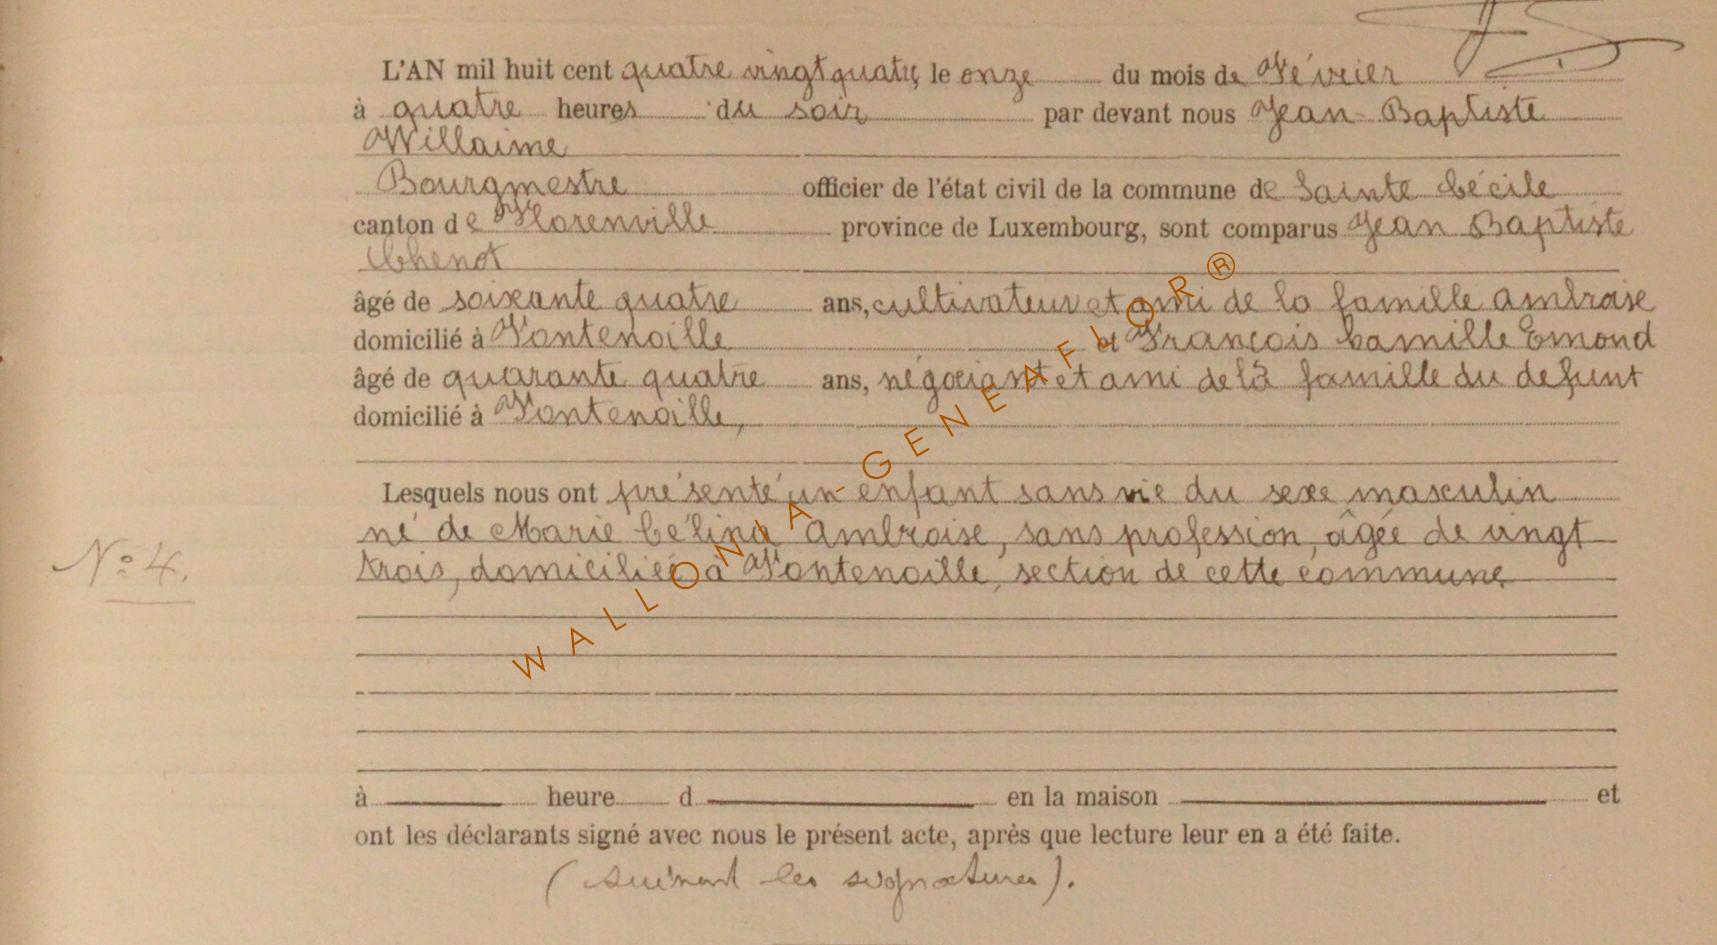 L'AN mil huit cent quatre vingt quatre, le onze du mois de Février
à quatre heures du soir par devant nous Jean-Baptiste
Willaime
Bourgmestre officier de l'état civil de la commune de Sainte Cécile
canton de Florenville province de Luxembourg, sont comparus Jean Baptiste
Chenot
âgé de soixante quatre ans, cultivateur et ami de la famille Ambroise
domicilié à Fontenoille et François Camille Emond
âgé de quarante quatre ans, négociant et ami de la famille du defunt
domicilié à Fontenoille,
Lesquels nous ont présenté un enfant sans vie du sexe masculin
né de Marie Célina Ambroise, sans profession, âgée de vingt
N° 4.
trois, domiciliée à Fontenoille, section de cette commune
à heure d en la maison et
ont les déclarants signé avec nous le présent acte, après que lecture leur en a été faite.
(suivent les signatures).
WALLONIA-GENEAFLOR®